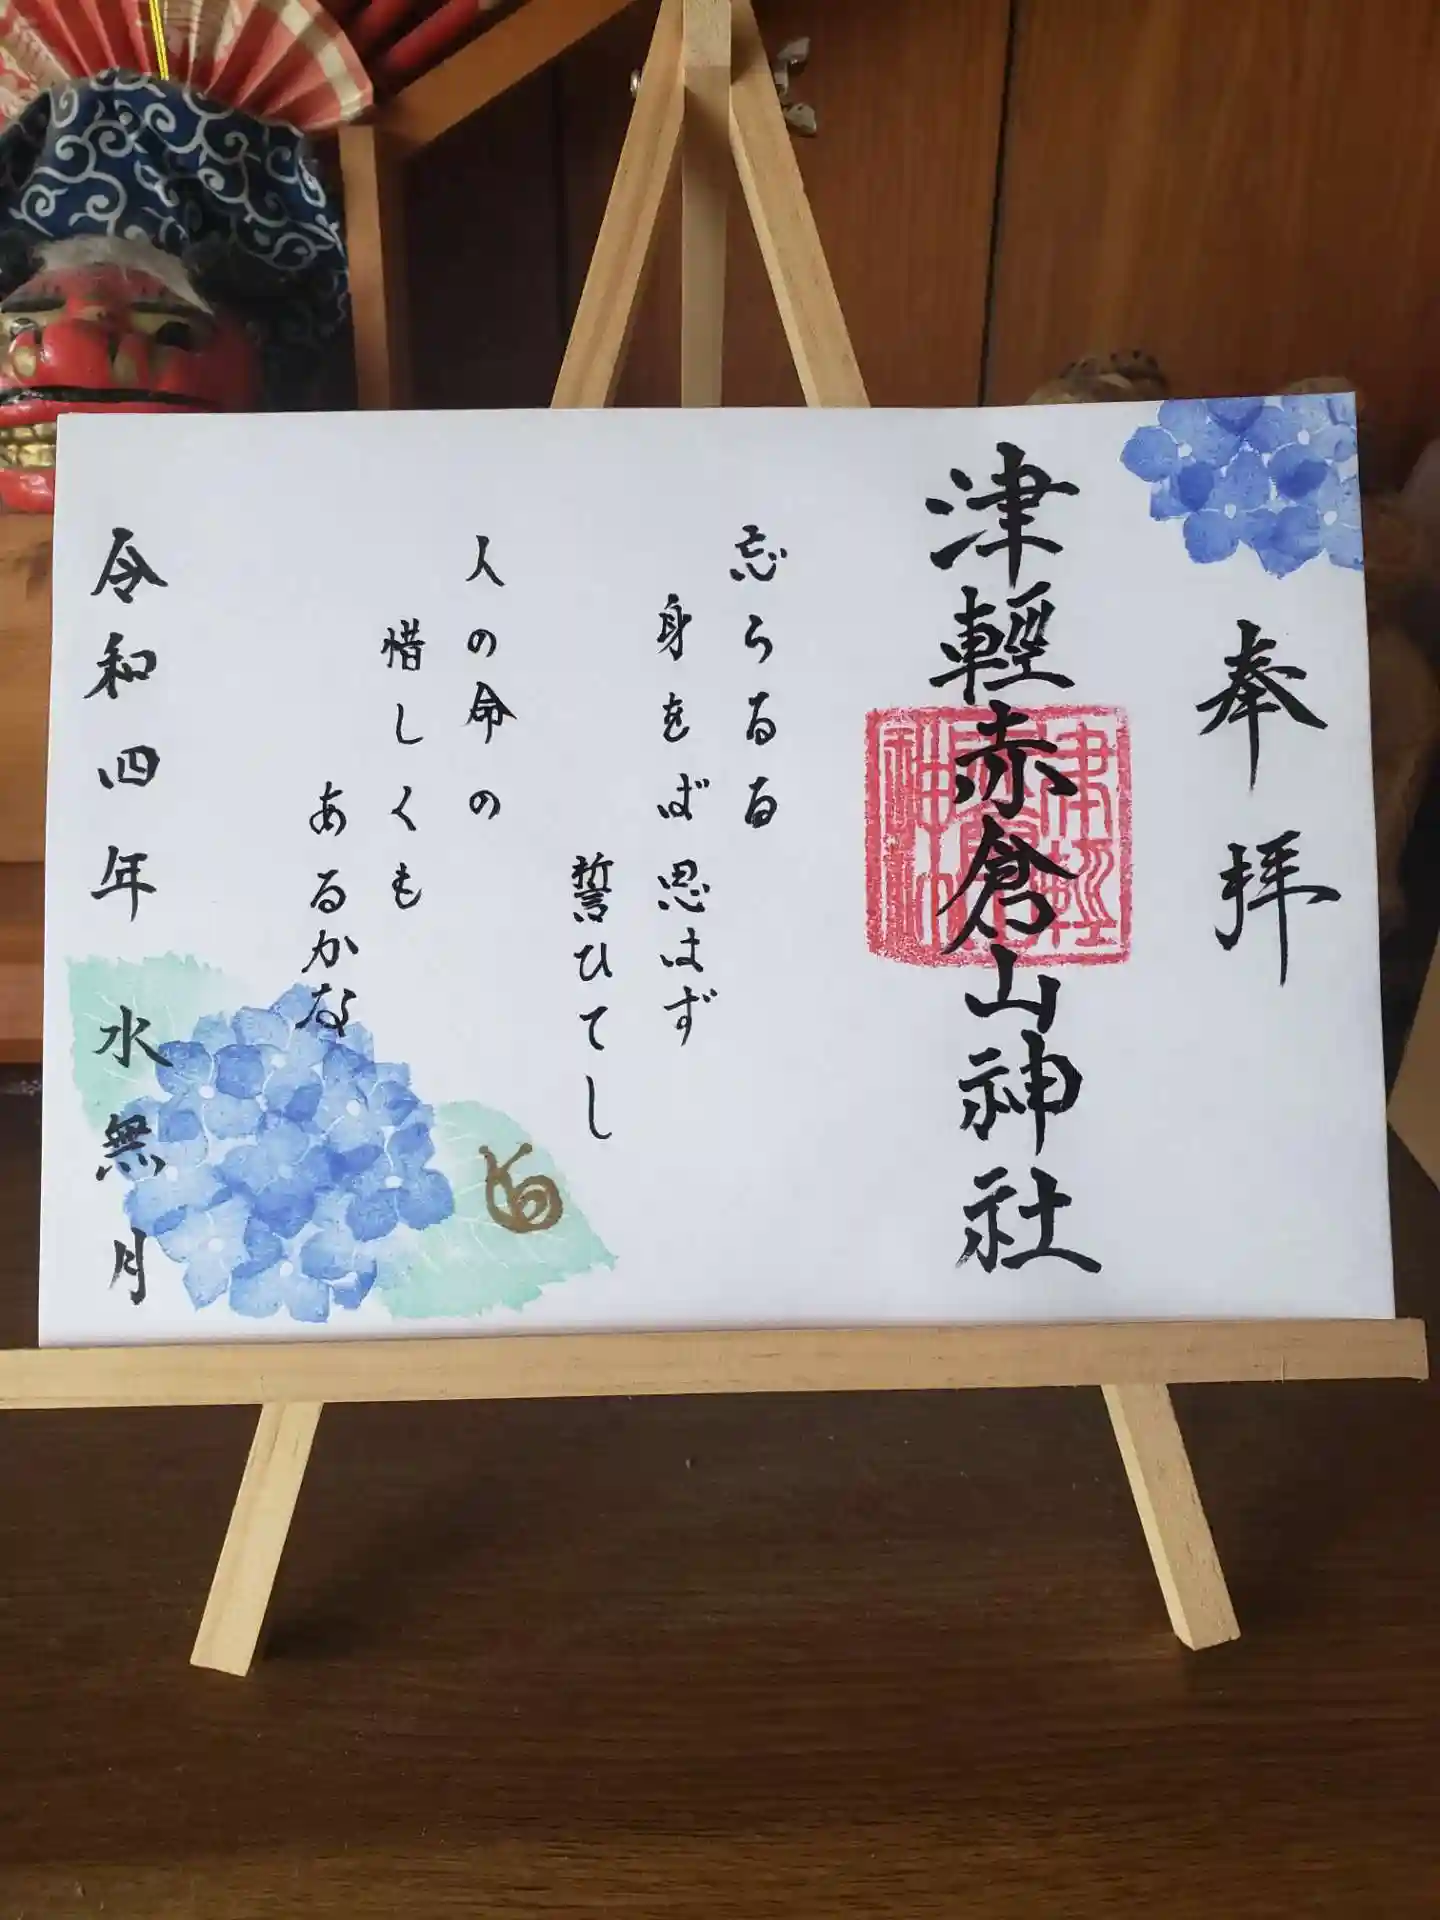 奉拝
津輕赤倉山神社
忘らるる
身をば思はず
誓ひてし
人の命の
惜しくも
あるかな
令和四年 水無月